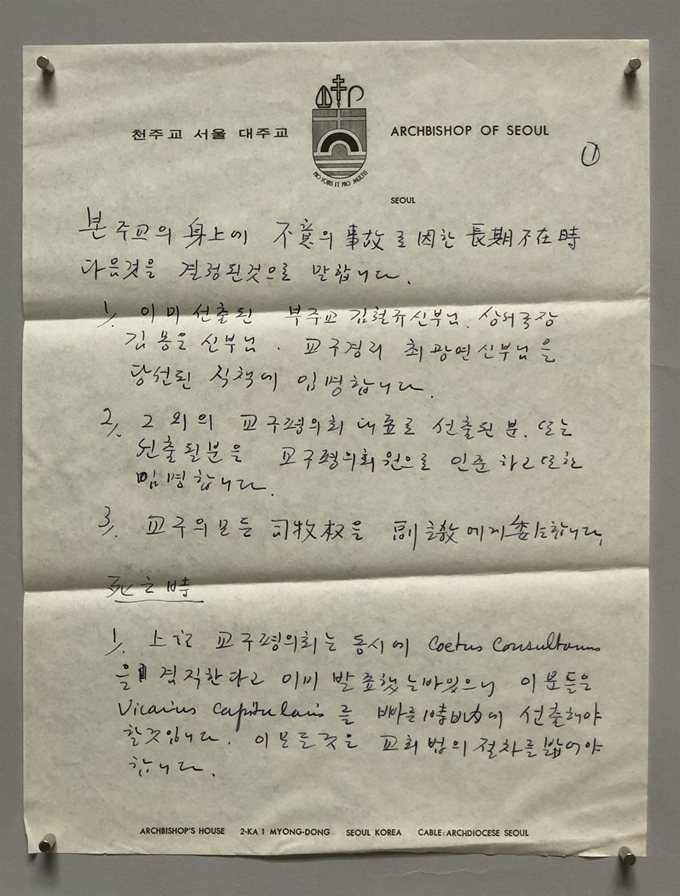 천주교 서울 대주교
ARCHBISHOP OF SEOUL
PRO VOBIS ET PRO MULTIS
SEOUL
①
본 주교의 身上에 不意의 事故로 因한 長期不在時
다음것을 결정된것으로 말합니다.
1. 이미 선출된 부주교 김철규신부님. 상서국장
김몽은 신부님. 교구경리 최광연신부님을
당선된 직책에 임명합니다.
2. 그 외의 교구평의회 대표로 선출된 분. 또는
선출될분을 교구평의회원으로 인준하고 또한
임명합니다.
3. 교구의 모든 司牧权을 副主敎에게 委任합니다.
死亡時
1. 上記 교구평의회는 동시에 Coetus Consultorum
을 겸직한다고 이미 발표했는바있으니 이분들은
Vicarius Capitularis를 빠른 時日內에 선출해야
할것입니다. 이 모든것은 교회법의 절차를 밟어야
합니다.
ARCHBISHOP'S HOUSE 2-KA 1 MYONG-DONG SEOUL KOREA CABLE: ARCHDIOCESE SEOUL